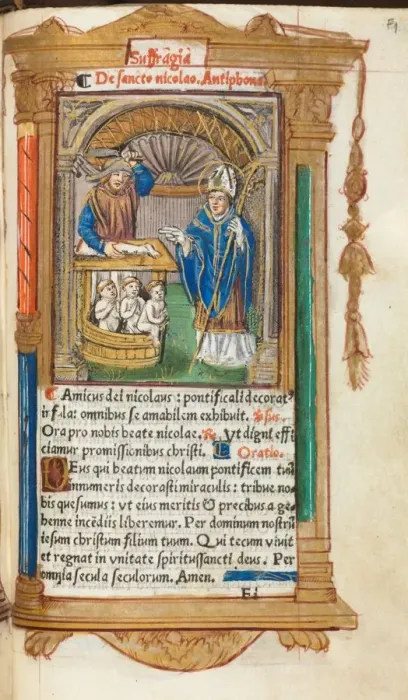 Suffragia
De sancto nicolao. Antiphona
Amicus dei nicolaus : pontificali decorat⁹
ifula: omnibus se amabilem exhibuit. ℣sus.
Ora pro nobis beate nicolae. ℟. Ut digni effi
ciamur promissionibus christi. Oratio.
Deus qui beatum nicolaum pontificem tuū
innumeris decorasti miraculis : tribue no
bis quesumus : vt eius meritis & precibus a ge
henne incēdiis liberemur. Per dominum nostrū
iesum christum filium tuum. Qui tecum viuit
et regnat in vnitate spiritussancti deus. Per
omnia secula seculorum. Amen.